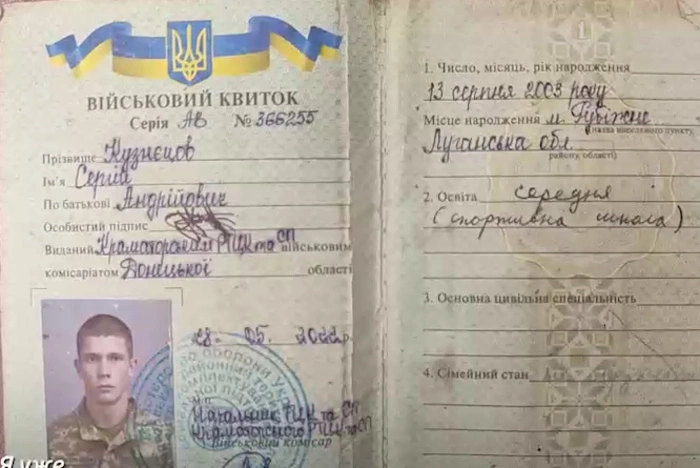 ВІЙСЬКОВИЙ КВИТОК
Серія АВ № 366255
Прізвище Кузнєцов
Ім'я Сергій
По батькові Андрійович
Особистий підпис
Виданий Краматорським РТЦК та СП військовим
комісаріатом Донецької області
28. 05. 2022р.
Начальник РТЦК та СП
Краматорського РТЦК та СП
Військовий комісар
Я уже
1
1. Число, місяць, рік народження
13 серпня 2003 року
Місце народження м.
(назва населеного пункту,
Луганська обл.
району, області)
2. Освіта середня
(спортивна школа)
3. Основна цивільна спеціальність
4. Сімейний стан